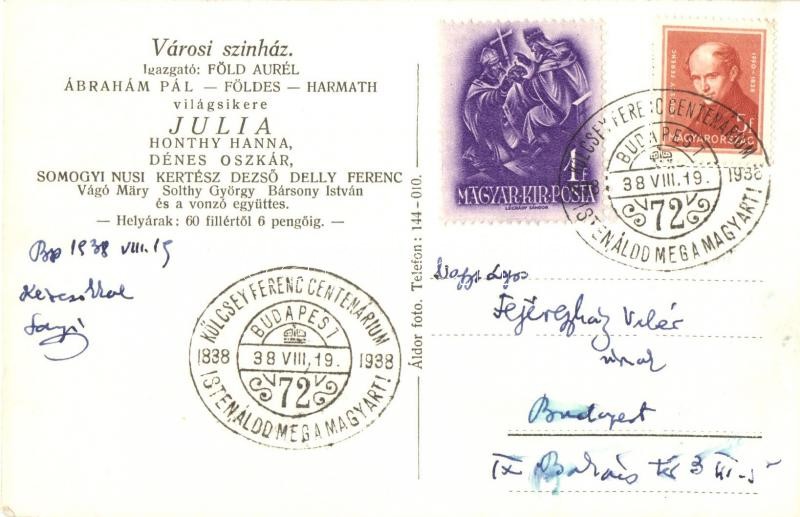 Városi szinház.
Igazgató: FÖLD AURÉL
ÁBRAHÁM PÁL — FÖLDES — HARMATH
világsikere
JULIA
HONTHY HANNA,
DÉNES OSZKÁR,
SOMOGYI NUSI KERTÉSZ DEZSŐ DELLY FERENC
Vágó Máry Solthy György Bársony István
és a vonzó együttes.
— Helyárak: 60 fillértől 6 pengőig. —
Bp 1938 VIII.19
KÖLCSEY FERENC CENTENÁRIUM
BUDAPEST
1838 38 VIII.19. 1938
72
ISTEN ÁLDD MEG A MAGYART!
Áldor foto. Telefon: 144-010.
1F
MAGYAR·KIR·POSTA
LÉGRÁDY SÁNDOR
FERENC
1790-1838
5f
MAGYARORSZÁG
KÖLCSEY FERENC CENTENÁRIUM
BUDAPEST
38 VIII.19. 1938
72
ISTEN ÁLDD MEG A MAGYART!
úrnak
Budapest
IX tér 3